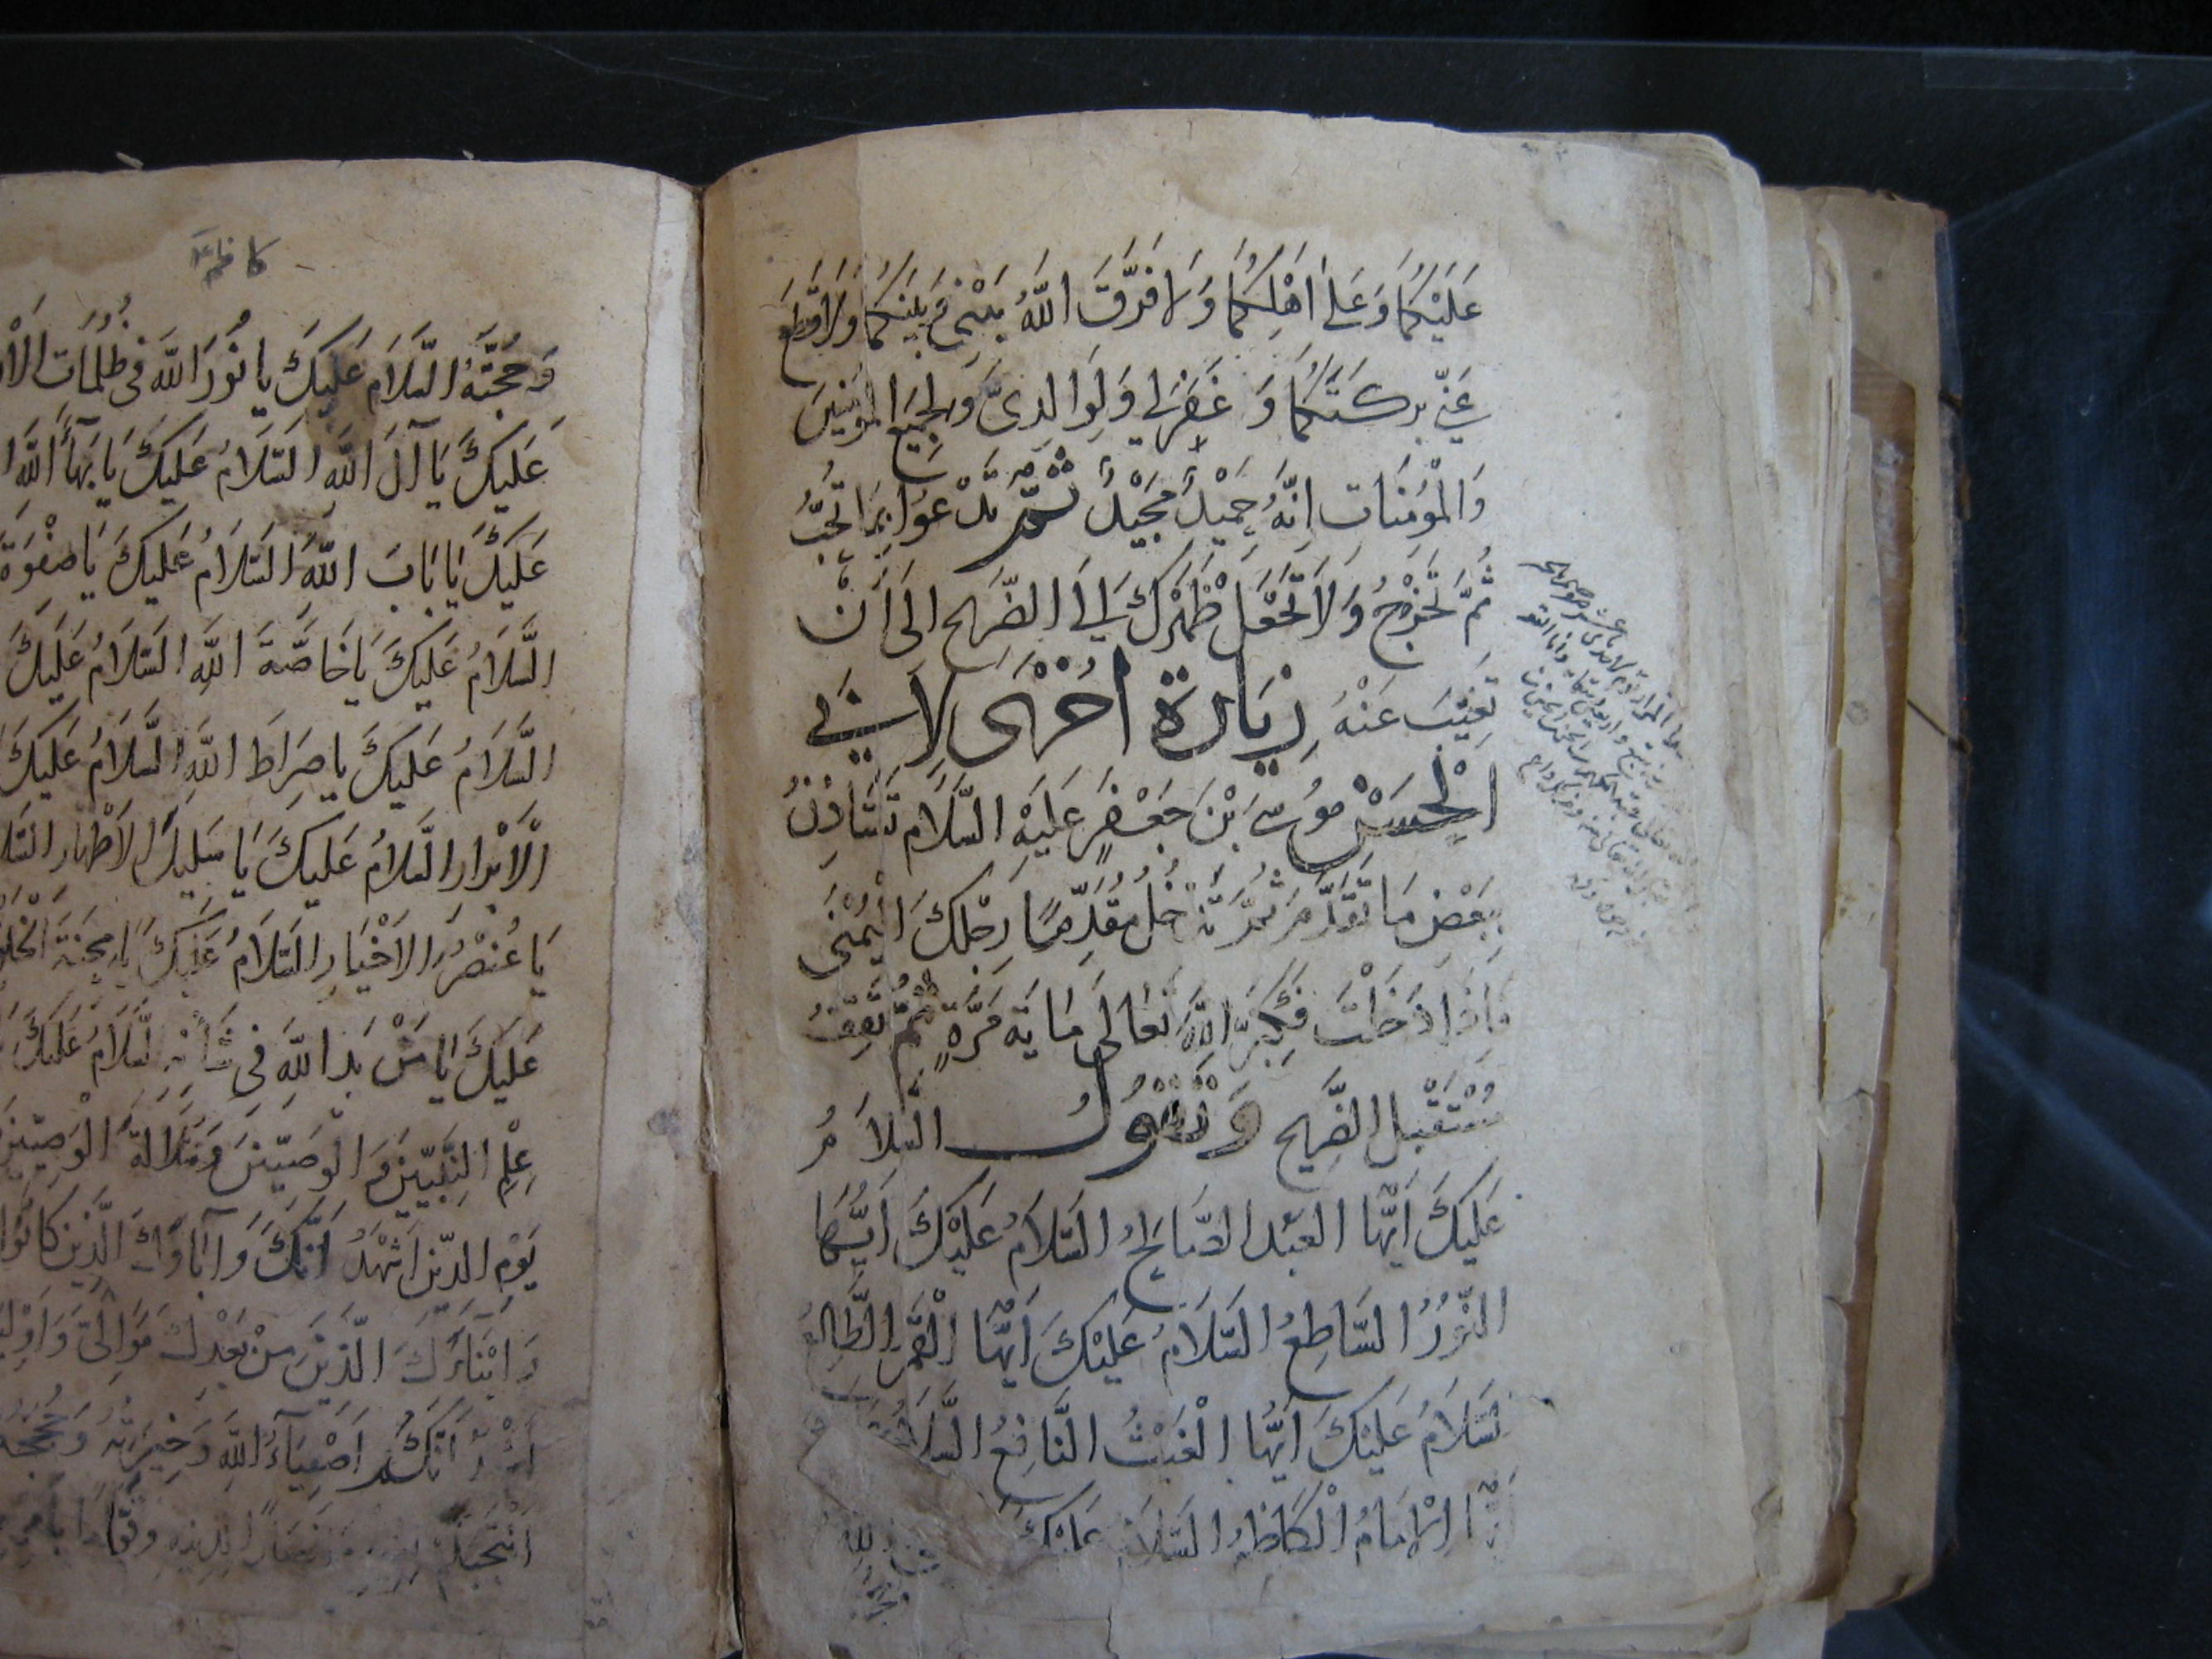 عَلَيْكُمَا وَعَلَى اَهْلِكُمَا وَلَا فَرَّقَ اللّٰهُ بَيْنِي وَبَيْنَكُمَا وَلَا قَطَعَ
عَنِّي بَرَكَتَكُمَا وَغَفَرَ لِي وَلِوَالِدَيَّ وَلِجَمِيعِ الْمُؤْمِنِينَ
وَالْمُؤْمِنَات اِنَّهُ حَمِيْدٌ مَجِيْدٌ ثُمَّ تَدْعُوا بِمَا تُحِبُّ
ثُمَّ تَخْرُجُ وَلَا تَجْعَل ظَهْرَكَ اِلَى الضَّرِيحِ اِلَى اَنْ
تَغِيْبَ عَنْهُ زِيَارَة اُخْرَى لِاَبِي
الْحَسَن مُوسَى ابْنَ جَعْفَرٍ عَلَيْهِ السَّلَام تَسْتَاذِنُ
بِبَعْضِ مَا تَقَدَّمَ ثُمَّ تَدْخُلُ مُقَدِّمًا رِجْلَكَ الْيُمْنَى
فَاِذَا دَخَلْتَ فَكَبِّر اللّٰهَ تَعَالَى مَايَة مَرَّةٍ ثُمَّ تَقِفُ
مُسْتَقْبِل الضَّرِيح وَتَقُول السَّلَامُ
عَلَيكَ اَيُّهَا العَبْد الصَّالِحُ السَّلَامُ عَلَيْكَ اَيُّهَا
النُّوْرُ السَّاطِعُ السَّلَامُ عَلَيْكَ اَيُّهَا الْقَمَر الطَّالِعُ
السَّلَامُ عَلَيْكَ اَيُّهَا الْغَيْثُ النَّافِعُ السَّلَامُ
اَيُّهَا الْاِمَامُ الْكَاظِمُ السَّلَامُ عَلَيْكَ
كاظم
وَحُجَّتَهُ السَّلَام عَلَيكَ يا نُوْرَ اللّٰه فِي ظُلُمَات الْاَرْ
عَلَيكَ يَا آلَ اللّٰهِ السَّلَامُ عَلَيكَ يَا بَهَاءَ اللّٰهِ ا
عَلَيكَ يَا بَابَ اللّٰهِ السَّلَامُ عَلَيكَ يَا صَفْوَةَ
السَّلَامُ عَلَيكَ يَا خَاصَّةَ اللّٰهِ السَّلَامُ عَلَيكَ
السَّلَامُ عَلَيكَ يا صِرَاطَ اللّٰهِ السَّلَامُ عَلَيكَ
الْاَبْرَارِ السَّلَامُ عَلَيكَ يَا سَلِيلَ الاَطْهَار السَّلَا
يَا عُنْصُرَ الاَخْيَارِ السَّلَامُ عَلَيكَ يَا مِحْنَةَ الْخَلْق
عَلَيكَ يَا مَنْ بَدَا لِلّٰهِ فِي شَأْنِهِ السَّلَامُ عَلَيكَ
عِلْمِ النَّبِيّيْنَ وَالوَصِيّيْنَ وَسُلَالَةَ الْوَصِيّيْنَ
يَوْمِ الدّيْن اَشْهَدُ اَنَّكَ وَآبَاؤَكَ الَّذِيْن كَانُوا
وَاَبْنَاءَكَ الَّذِيْنَ مِنْ بَعْدِكَ مَوَالِيَّ وَاَوْلِيَا
اَنَّكُم اَصْفِيَآءُ اللّٰهِ وَخِيَرَتُهُ وَحُجَّتُهُ